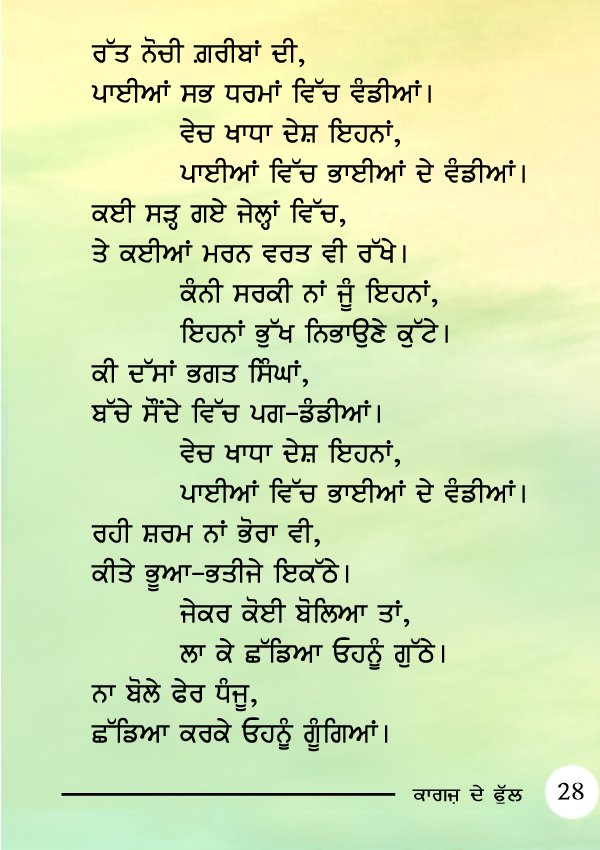 ਰੱਤ ਨੋਚੀ ਗ਼ਰੀਬਾਂ ਦੀ,
ਪਾਈਆਂ ਸਭ ਧਰਮਾਂ ਵਿੱਚ ਵੰਡੀਆਂ।
ਵੇਚ ਖਾਧਾ ਦੇਸ਼ ਇਹਨਾਂ,
ਪਾਈਆਂ ਵਿੱਚ ਭਾਈਆਂ ਦੇ ਵੰਡੀਆਂ।
ਕਈ ਸੜ੍ਹ ਗਏ ਜੇਲ੍ਹਾਂ ਵਿੱਚ,
ਤੇ ਕਈਆਂ ਮਰਨ ਵਰਤ ਵੀ ਰੱਖੇ।
ਕੰਨੀ ਸਰਕੀ ਨਾਂ ਜੂੰ ਇਹਨਾਂ,
ਇਹਨਾਂ ਭੁੱਖ ਨਿਭਾਉਣੇ ਕੁੱਟੇ।
ਕੀ ਦੱਸਾਂ ਭਗਤ ਸਿੰਘਾਂ,
ਬੱਚੇ ਸੌਂਦੇ ਵਿੱਚ ਪਗ-ਡੰਡੀਆਂ।
ਵੇਚ ਖਾਧਾ ਦੇਸ਼ ਇਹਨਾਂ,
ਪਾਈਆਂ ਵਿੱਚ ਭਾਈਆਂ ਦੇ ਵੰਡੀਆਂ।
ਰਹੀ ਸ਼ਰਮ ਨਾਂ ਭੋਰਾ ਵੀ,
ਕੀਤੇ ਭੂਆ-ਭਤੀਜੇ ਇਕੱਠੇ।
ਜੇਕਰ ਕੋਈ ਬੋਲਿਆ ਤਾਂ,
ਲਾ ਕੇ ਛੱਡਿਆ ਓਹਨੂੰ ਗੁੱਠੇ।
ਨਾ ਬੋਲੇ ਫੇਰ ਧੰਜੂ,
ਛੱਡਿਆ ਕਰਕੇ ਓਹਨੂੰ ਗੂੰਗਿਆਂ।
ਕਾਗਜ਼ ਦੇ ਫੁੱਲ 28